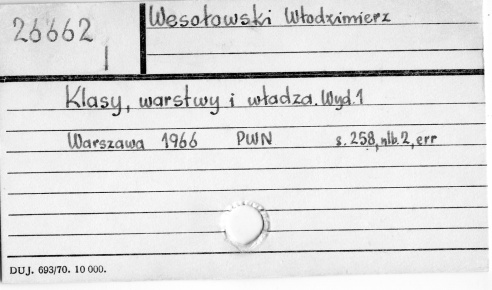 26662
I
Wesołowski Włodzimierz
Klasy, warstwy i władza. Wyd. 1
Warszawa 1966 PWN s. 258, nlb. 2, err
DUJ. 693/70. 10 000.